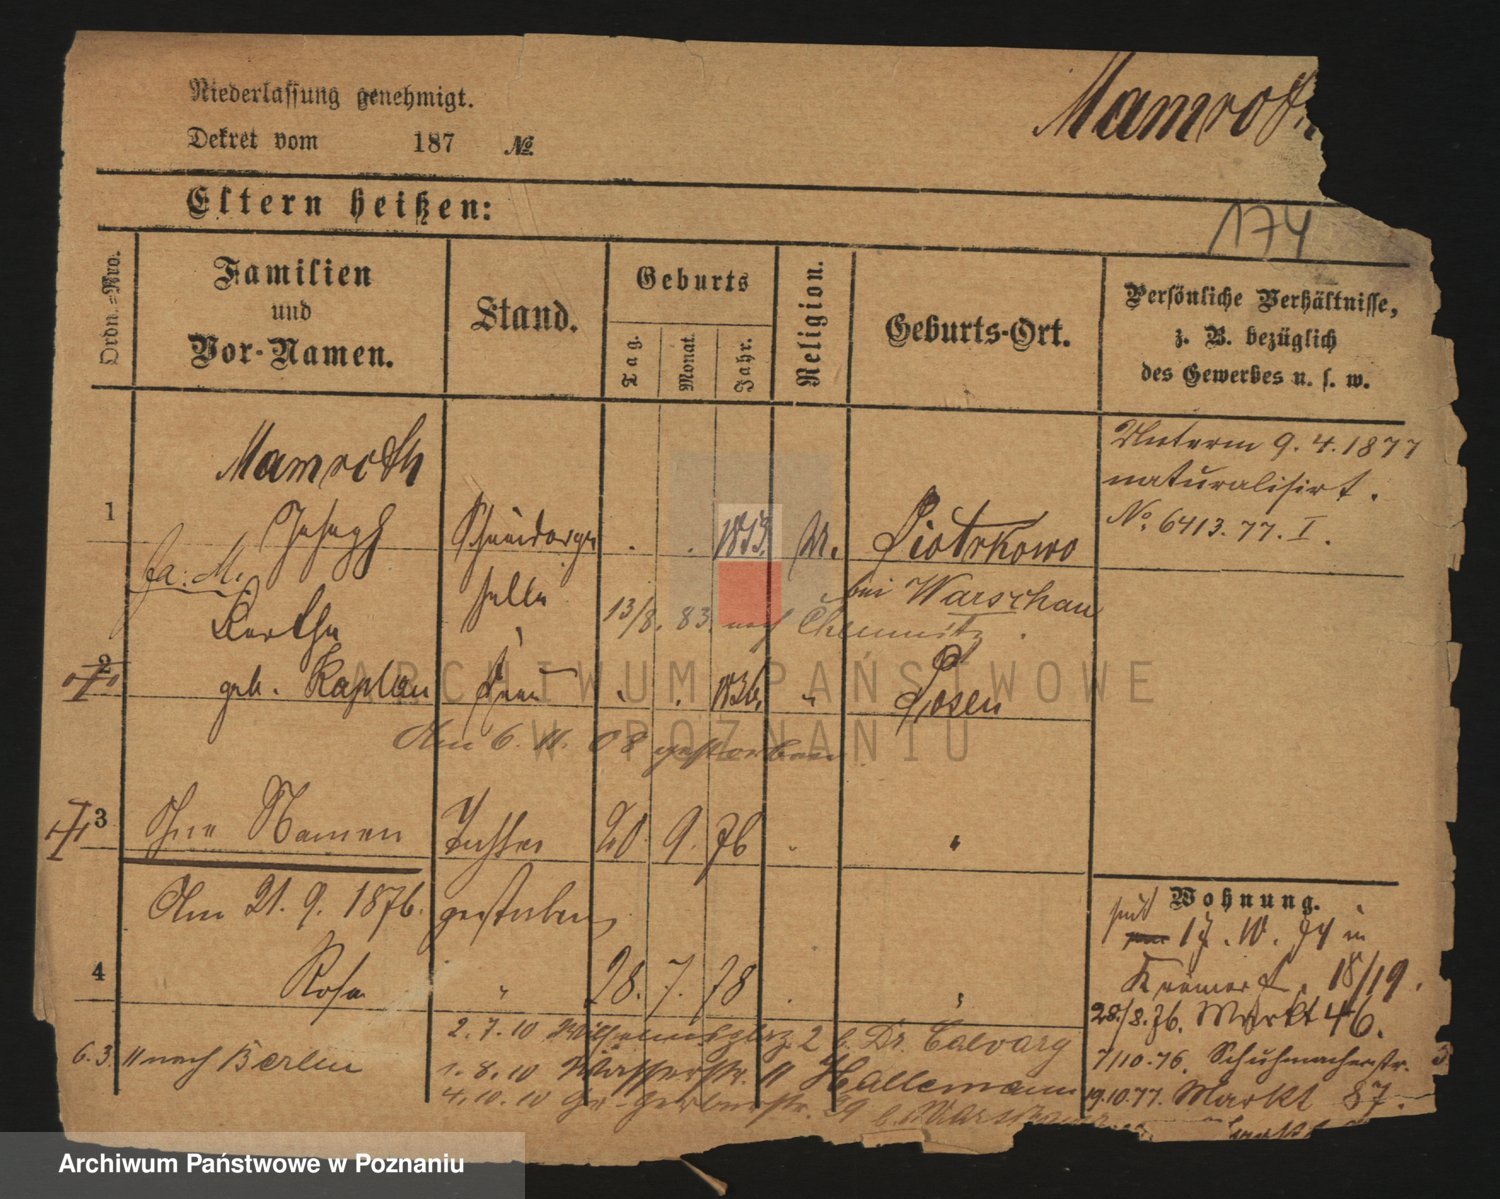 Niederlassung genehmigt.
Mamroth
Dekret vom 187 №
174
Eltern heißen:
Ordn.=Nro.
Familien
und
Vor-Namen.
Stand.
Geburts
Tag.
Monat.
Jahr.
Religion.
Geburts-Ort.
Persönliche Verhältnisse,
z. B. bezüglich
des Gewerbes u. s. w.
Unterm 9.4.1877
naturalisirt.
No. 6413.77.I.
Mamroth
1 Joseph 1833. M. Piotrkowo
bei Warschau
fa: M. 13/8. 83. nach Chemnitz.
Bertha
2 geb. Kaplan Frau 1836. " Posen
Am 6. 11. 08 gestorben
3 Ohne Namen Tochter 20 9. 76
Am 21. 9. 1876. gestorben
4 Rosa " 28. 7. 78
Wohnung.
seit
17. 10. 74 in
18/19.
28./8.76. Markt 46.
7/10.76. Schuhmacherstr.
19.10.77. Markt 87.
2.7.10 Wilhelmsplatz 2 b. Dr. Calvary
6.3. 11 nach Berlin
1.8.10 Wasserstr. 11 Hallemann
4.10.10
ARCHIWUM PAŃSTWOWE
W POZNANIU
Archiwum Państwowe w Poznaniu